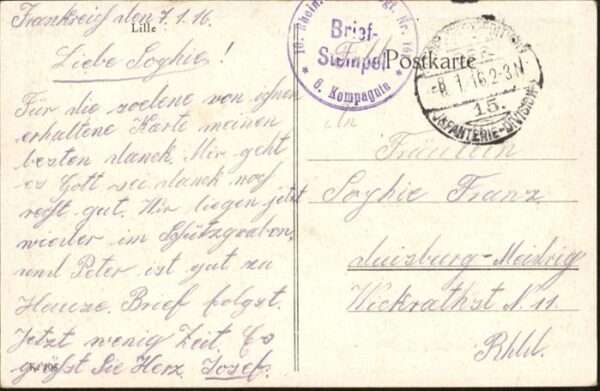 Frankreich den 7.1.16.
Lille
Liebe Sophie!
Für die soebene von ihnen
erhaltene Karte meinen
besten danck. Mir geht
es Gott sei danck noch
recht gut. Wir liegen jetzt
wieder im Schützgraben,
und Peter ist gut zu
Hauze. Brief folgst.
Jetzt wenig Zeit. Es
grüßt Sie Herz. Josef.
10. Rhein. Nr. 16
Brief-
Stempel
* 6. Kompagnie *
Feldpostkarte
-8.1.16.2-3.N
15.
INFANTERIE-DIVISION
An
Fräulein
Sophie Franz
Duisburg-Meidrig
Wickrathst N. 11
Rhld.